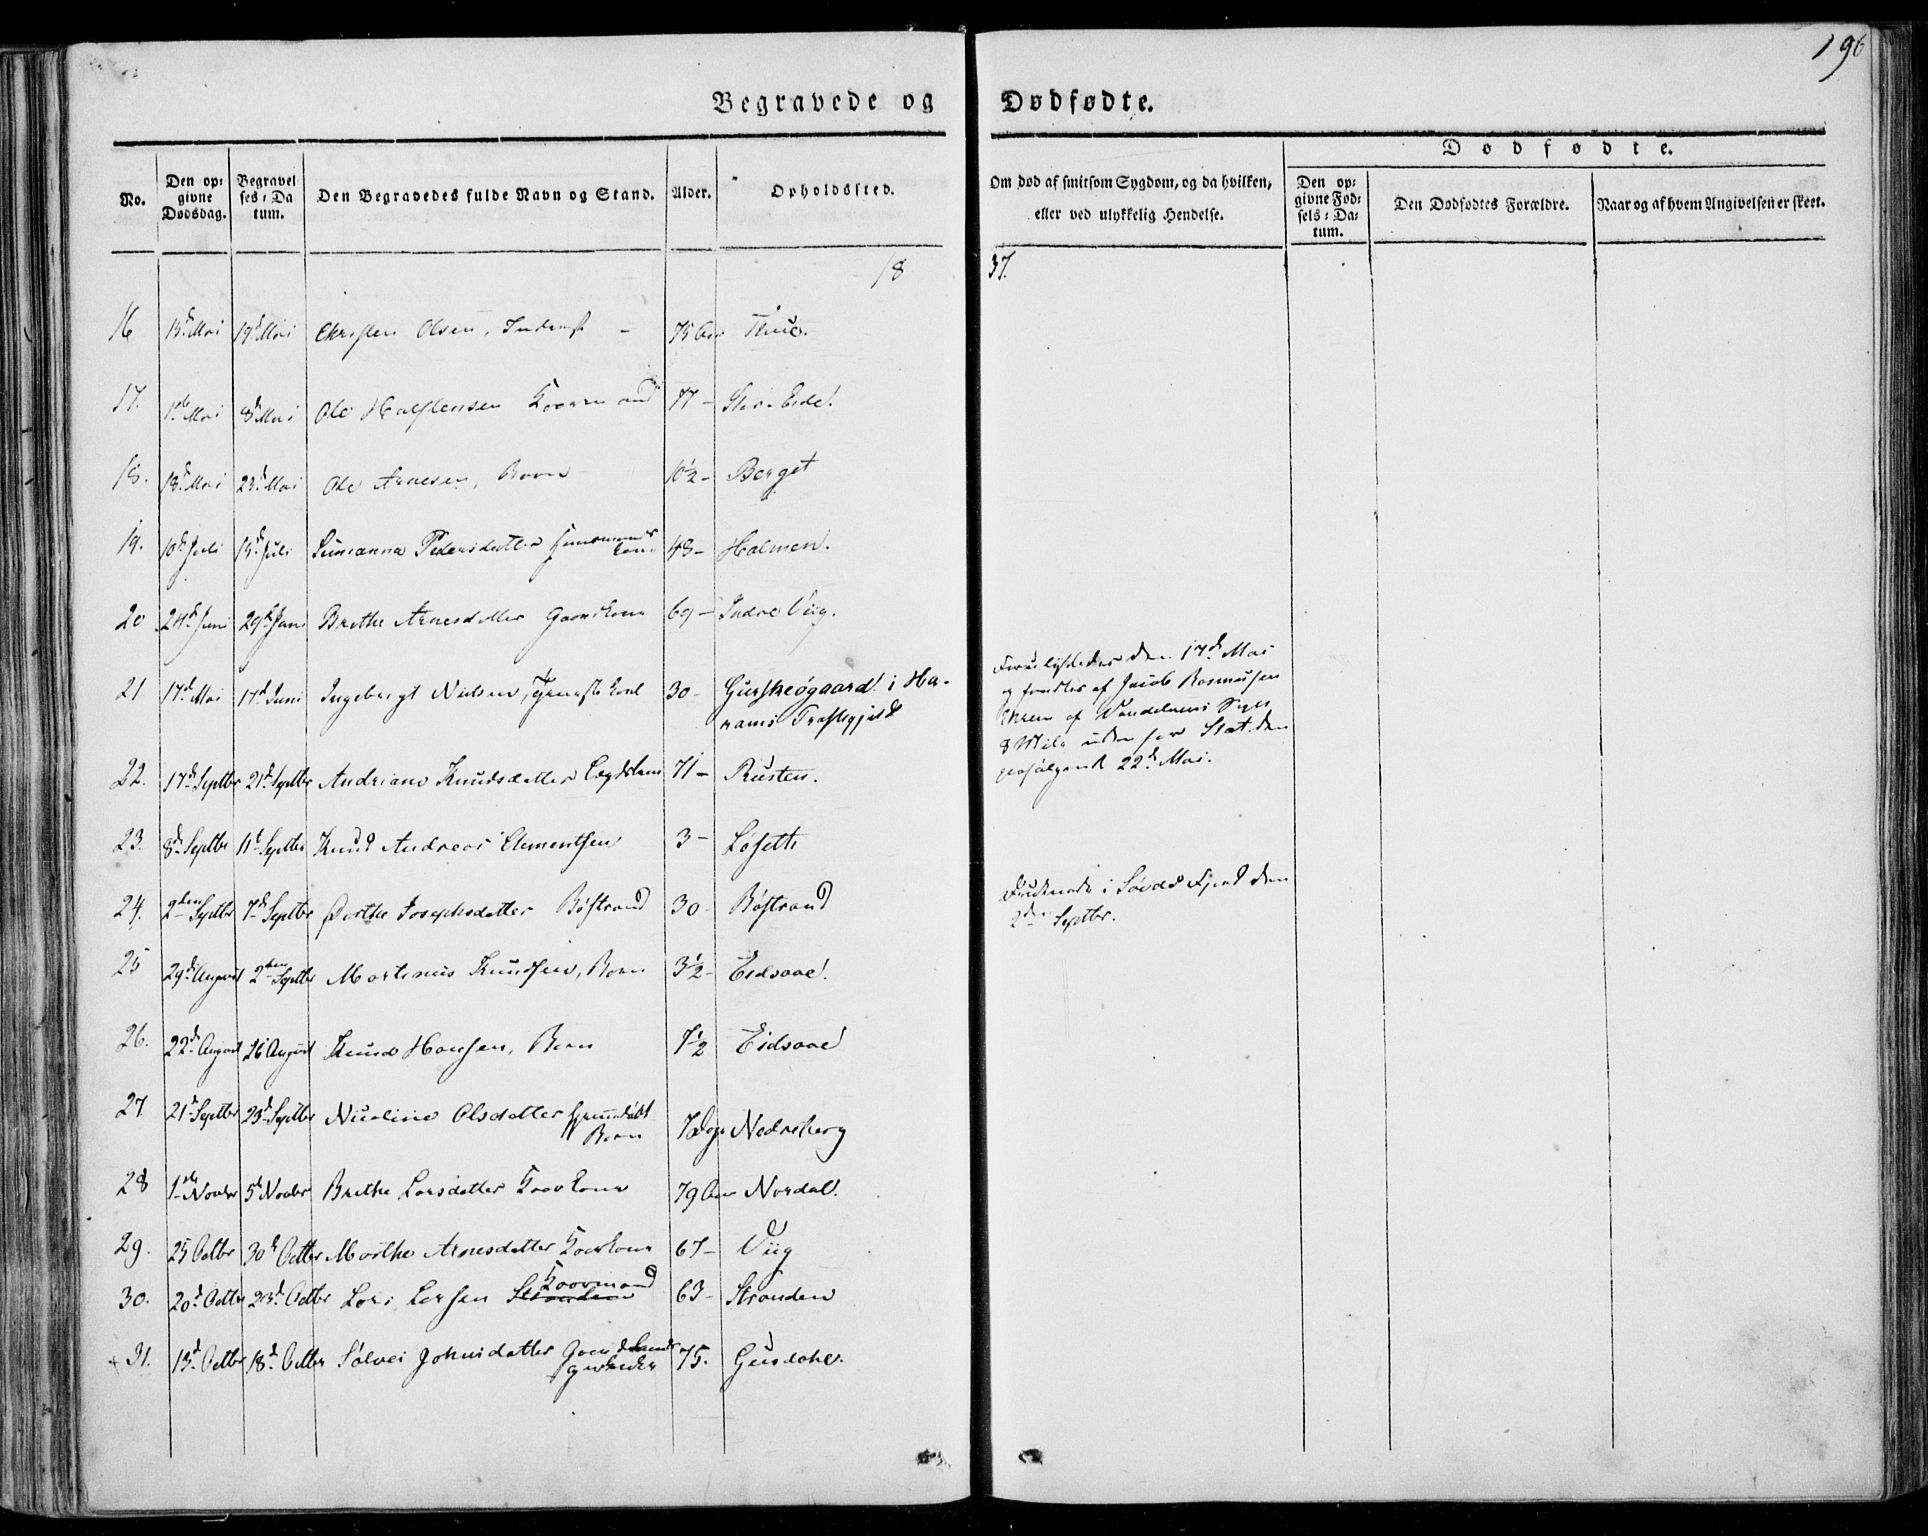 196
Begravede og Dødfødte.
No.
Den op-
givne
Dødsdag.
Begravel
ses-Da
tum.
Den Begravedes fulde Navn og Stand.
Alder.
Opholdssted.
Om død af smitsom Sygdom, og da hvilken,
eller ved ulykkelig Hendelse.
Dødfødte.
Den op-
givne Fød-
sels-Da-
tum.
Den Dødfødtes Forældre.
Naar og af hvem Angivelsen er skeet.
1837.
16 13d Mai 19d Mai Christen Olsen, Inderst - 75 Aar
17. 1ste Mai 8d Mai Ole Halstensen Koormand 77 - Eide
18. 18d Mai 22d Mai Ole Arnesen, Barn 10½ - Berget
19. 10d Juli 15d Juli Susanna Pedersdatter Huusmands
kone 48 - Holmen.
20 24d Juni 29d Juni Brethe Arnesdatter Gaardkone 69 - Indre Viig.
21 17d Mai 17d Juni Ingebregt Nielsen, 30 - Gurskeøgaard i Ha-
rams Præstegjeld
Forulykkedes den 17d Mai
og fandtes af Jacob Rasmussen
af
8 Mile uden for Stat den
paafølgende 22d Mai.
22. 17d Septbr 21d Septbr Andriane Knudsdatter Lægdslem 71 - Rusten.
23. 8d Septbr 11d Septbr Knud Andreas Clementsen 3 - Løseth
24. 2den Septbr 7d Septbr Dorthe Josephsdatter Böstrand 30 - Böstrand
Druknede i Søvde Fjord den
2den Septbr.
25 29d August 2den Septbr Martinus Knudsen, Barn 3½ - Eidsaae
26. 22d August 26 August Knud Hansen, Barn 7½ Eidsaae
27 21d Septbr 23d Septbr Nicoline Olsdatter Hjemmedøbt
Barn 7 Dage Nedreberg
28 1ste Novbr 5d Novbr Brethe Larsdatter Koorkone 79 Aar Nordal.
29. 25 Octbr 30d Octbr Marthe Arnesdatter Koorkone 67 - Viig
30. 20d Octbr 23d Octbr Lars Larsen Stranden Koormand 63 - Stranden
31. 13d Octbr 18d Octbr Sølvei Johnsdatter 75. Gusdahl.